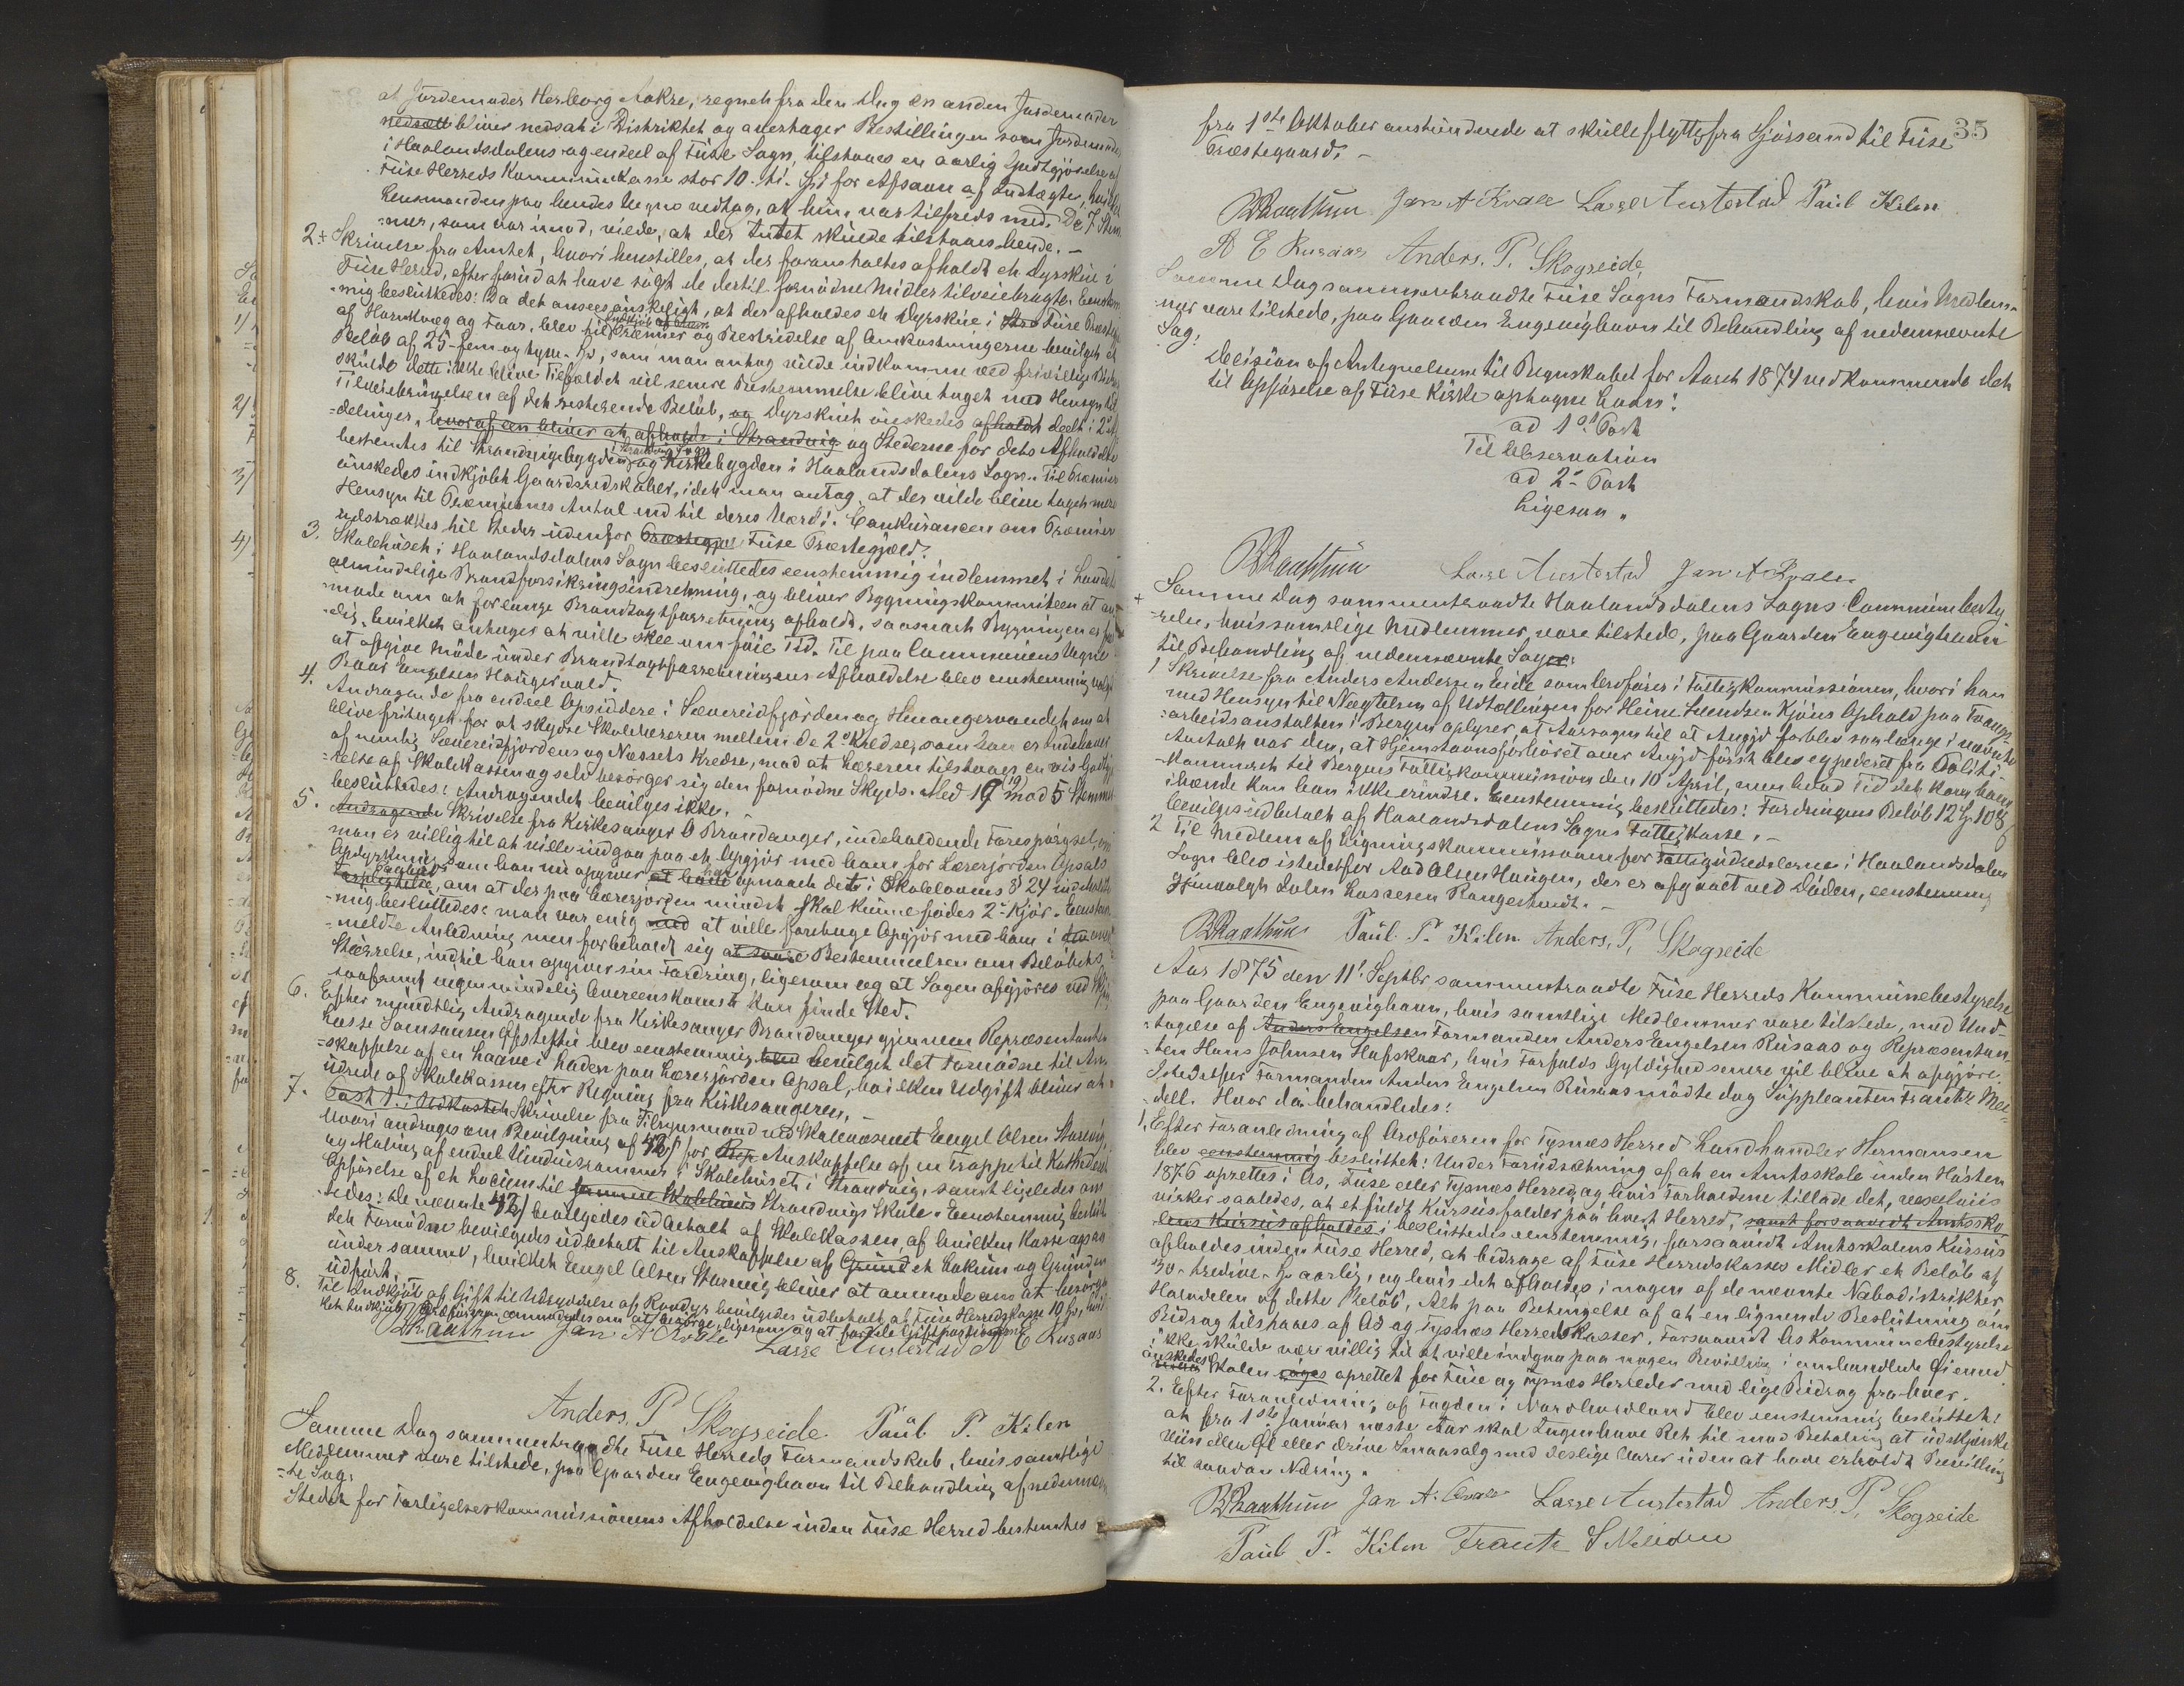 at Jordemoder Herborg Aakre, regnet fra den Dag en anden Jordemoder
nedsætt bliver nedsat i Distriktet og overtager Bestillingen som Jordemoder
i Haalandsdalens og endeel af Fuse Sogn, tilstaaes en aarlig Godtgjørelse af
Fuse Herreds Kommunekasse stor 10 - ti - Spd for Afsavn af Indtægter, hvilket
Lensmanden paa hendes Vegne vedtog, at hun var tilfreds med. De 7 Stem-
mer, som var imod, vilde, at der Intet skulde tilstaaes hende. -
2 + Skrivelse fra Amtet, hvori henstilles, at der foranstaltes afholdt et Dyrskue i
Fuse Herred, efter forud at have søgt de dertil fornødne Midler tilveiebragte. Eenstem-
mig besluttedes: Da det ansees ønskeligt, at der afholdes et Dyrskue i Fuse Præstegj.
af Hornkvæg og Faar, blev til Indkjøb af Præmier og Bestridelse af Omkostningerne bevilget et
Beløb af 25 - fem og tyve - Spd, som man antog vilde indkomme ved frivillige Bidrag
skulde dette ikke blive Tilfældet vil senere Bestemmelse blive taget med Hensyn til
Tilveiebringelsen af det resterende Beløb, og Dyrskuet ønskedes afholdt deelt i 2de Af-
delinger, hvoraf en bliver at afholde i Strandvig og Stederne for dets Afholdelse
bestemtes til Strandvigsbygden i Strandvigs Sogn og Kirkebygden i Haalandsdalens Sogn. Til Præmier
ønskedes indkjøbt Gaardsredskaber, idet man antog, at der vilde blive taget mere
Hensyn til Præmiernes Antal end til deres Værdi. Conkurancen om Præmier
udstrækkes til Steder udenfor Præstegjel Fuse Præstegjæld.
3. Skolehuset i Haalandsdalens Sogn besluttedes eenstemmig indlemmet i Landets
almindelige Brandforsikringsindretning, og bliver Bygningskommiteen at an-
mode om at forlange Brandtaxtforretning afholdt, saasnart Bygningen er fær-
dig, hvilket antages at ville skee om føie Tid. Til paa Communens Vegne
at afgive Møde under Brandtaxtforretningens Afholdelse blev eenstemmig valgt
Baar Engelsen Haugervold.
4. Andragende fra endeel Opsiddere i Sævereidfjorden og Henangervandet om at
blive fritaget for at skydse Skolelæreren mellem de 2de Kredse, som han er Indehaver
af nemlig Sævereidfjordens og Næssets Kredse, mod at Læreren tilstaaes en vis Godtgjø-
relse af Skolekassen og selv besørger sig den fornødne Skyds. Med 19 (19) mod 5 Stemmer
besluttedes: Andragendet bevilges ikke. -
5. Andragende Skrivelse fra Kirkesanger O Brandanger, indeholdende Forespørgsel, om
man er villig til at ville indgaa paa et Opgjør med ham for Lærerjorden Opsals
Opdyrkning, som han nu opgiver at have har opnaaet det i Skolelovens § 24 indeholdte
om at der paa Lærerjorden mindst skal kunne fødes 2de Kjør. Eenstem-
mig besluttedes: man var enig med at ville foretage Opgjør med ham i om-
meldte Anledning, men forbeholdt sig at tage Bestemmelsen om Beløbets
Størrelse, indtil han opgiver sin Fordring, ligesom og at Sagen afgjøres ved Skjøn,
saafremt ingen mindelig Overeenskomst kan finde Sted.
6. Efter mundtlig Andragende fra Kirkesanger Brandanger gjennem Repræsentanten
Lasse Samsonsen Østeftu blev eenstemmig blev bevilget det Fornødne til An-
skaffelse af en Laave i Laden paa Lærerjorden Opsal, hvilken Udgift bliver at
udrede af Skolekassen efter Regning fra Kirkesangeren. -
7. Post 1 i Udkastet Skrivelse fra Tilsynsmand ved Skolevæsenet Engel Olsen Storevig,
hvori andrages om Bevilgning af 42ß for Rep Anskaffelse af en Trappe til Kathederet
og Maling af endeel Vinduesrammer i Skolehuset i Strandvig, samt ligeledes om
Opførelse af et Locum til samme Skolehuus Strandvigs Skole. Eenstemmig beslut-
tedes: De nævnte 42ß bevilgedes udbetalt af Skolekassen, af hvilken Kasse ogsaa
det Fornødne bevilgedes udbetalt til Anskaffelse af Grund et Lokum og Grunden
under samme, hvilket Engel Olsen Storevig bliver at anmode om at besørge
udført.
8. Til Indkjøb af Gift til Udryddelse af Rovdyr bevilgedes udbetalt af Fuse Herredskasse 10 Spd, hvil-
ket Indkjøb Ordføreren anmodedes om at besørge, ligesom og at fordele Giftportionerne.
BRaathun Jan A Kvale Lasse Austestad A E Rusaas
Anders. P. Skogseide Paul P. Kilen
Samme Dag sammentraadte Fuse Herreds Formandskab, hvis samtlige
Medlemmer vare tilstede, paa Gaarden Engevighavn til Behandling af nedennævn-
te Sag:
Stedet for Forligelseskommissionens Afholdelse inden Fuse Herred bestemtes
35
fra 1ste Oktober anstundende at skulle flyttes fra Sjørsand til Fuse
Præstegaard. -
BRaathun Jan A Kvale Lasse Austestad Paul Kilen
A E Rusaas Anders. P. Skogseide
Samme Dag sammentraadte Fuse Sogns Formandskab, hvis Medlem-
mer vare tilstede, paa Gaarden Engevighavn til Behandling af nedennævnte
Sag:
Decision af Antegnelserne til Regnskabet for Aaret 1874 vedkommende det
til Opførelse af Fuse Kirke optagne Laan:
ad 1ste Post
Til Observation
ad 2den Post
Ligesaa.
BRaathun Lasse Austestad Jan A Kvale
+ Samme Dag sammentraadte Haalandsdalens Sogns Communebesty-
relse, hvis samtlige Medlemmer, vare tilstede, paa Gaarden Engevighavn
til Behandling af nedennævnte Sager:
1 Skrivelse fra Anders Andersen Eide som Ordfører i Fattigkommissionen, hvori han
med Hensyn til Nægtelsen af Udtællingen for Heine Svendsen Kjøns Ophold paa Tvangs-
arbeidsanstalten i Bergen oplyser, at Aarsagen til at Angjd forblev saa længe i nævnte
Anstalt var den, at Hjemstavnsforhøret over Angjd først blev expederet fra Politi-
kammeret til Bergens Fattigkommission den 10 April, men hvad Tid det kom ham
ihænde kan han ikke erindre. Eenstemmig besluttedes: Fordringens Beløb 12 Spd 108 ß
bevilges udbetalt af Haalandsdalens Sogns Fattigkasse. -
2 Til Medlem af Ligningskommissionen for Fattigudredelserne i Haalandsdalens
Sogn blev istedetfor Aad Olsen Haugen, der er afgaaet ved Døden, eenstemmig
gjenvalgt Salen Lassesen Rangestvedt. -
BRaathun Paul P. Kilen Anders, P, Skogseide
Aar 1875 den 11te Septbr sammentraadte Fuse Herreds Kommunebestyrelse
paa Gaarden Engevighavn, hvis samtlige Medlemmer vare tilstede, med Und-
tagelse af Anders Engelsen Formanden Anders Engelsen Rusaas og Repræsentan-
ten Hans Johnsen Hafskaar, hvis Forfalds Gyldighed senere vil blive at afgjøre.
Istedetfor Formanden Anders Engelsen Rusaas mødte dog Suppleanten Frantz Mel-
dell. Hvor da behandledes:
1, Efter Foranledning af Ordføreren for Tysnæs Herred Landhandler Hermansen
blev eenstemmig besluttet: Under Forudsætning af at en Amtsskole inden Høsten
1876 oprettes i Os, Fuse eller Tysnæs Herred, og hvis Forholdene tillade det, vexelviis
virker saaledes, at et fuldt Kursus falder paa hvert Herred, samt forsaavidt Amtssko-
lens Kursus afholdes i besluttedes eenstemmig, forsaavidt Amtsskolens Kursus
afholdes inden Fuse Herred, at bidrage af Fuse Herredskasses Midler et Beløb af
30 - tredive - Spd aarlig, og hvis det afholdes i nogen af de nævnte Nabodistrikter
Halvdelen af dette Beløb, Alt paa Betingelse af at en lignende Beslutning om
Bidrag tilstaaes af Os og Tysnæs Herreds Kasser. Forsaavidt Os Kommunebestyrelse
ikke skulde være villig til at ville indgaa paa nogen Bevilling i omhandlede Øiemed
ønskedes Skolen søges oprettet for Fuse og Tysnæs Herreder med lige Bidrag fra hver.
2. Efter Foranledning af Fogden i Nordhordland blev eenstemmig besluttet:
at fra 1ste Januar næste Aar skal Ingen have Ret til mod Betaling at udskjænke
Viin eller Øl eller drive Smaasalg med deslige Varer uden at have erholdt Bevilling
til saadan Næring.
BRaathun Jan A. Kvale Lasse Austestad Anders. P, Skogseide
Paul P. Kilen Frantz S Meldell